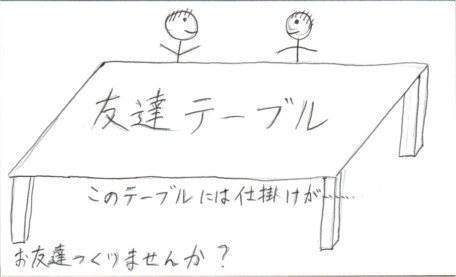 友達テーブル
このテーブルには仕掛けが………
お友達つくりませんか？